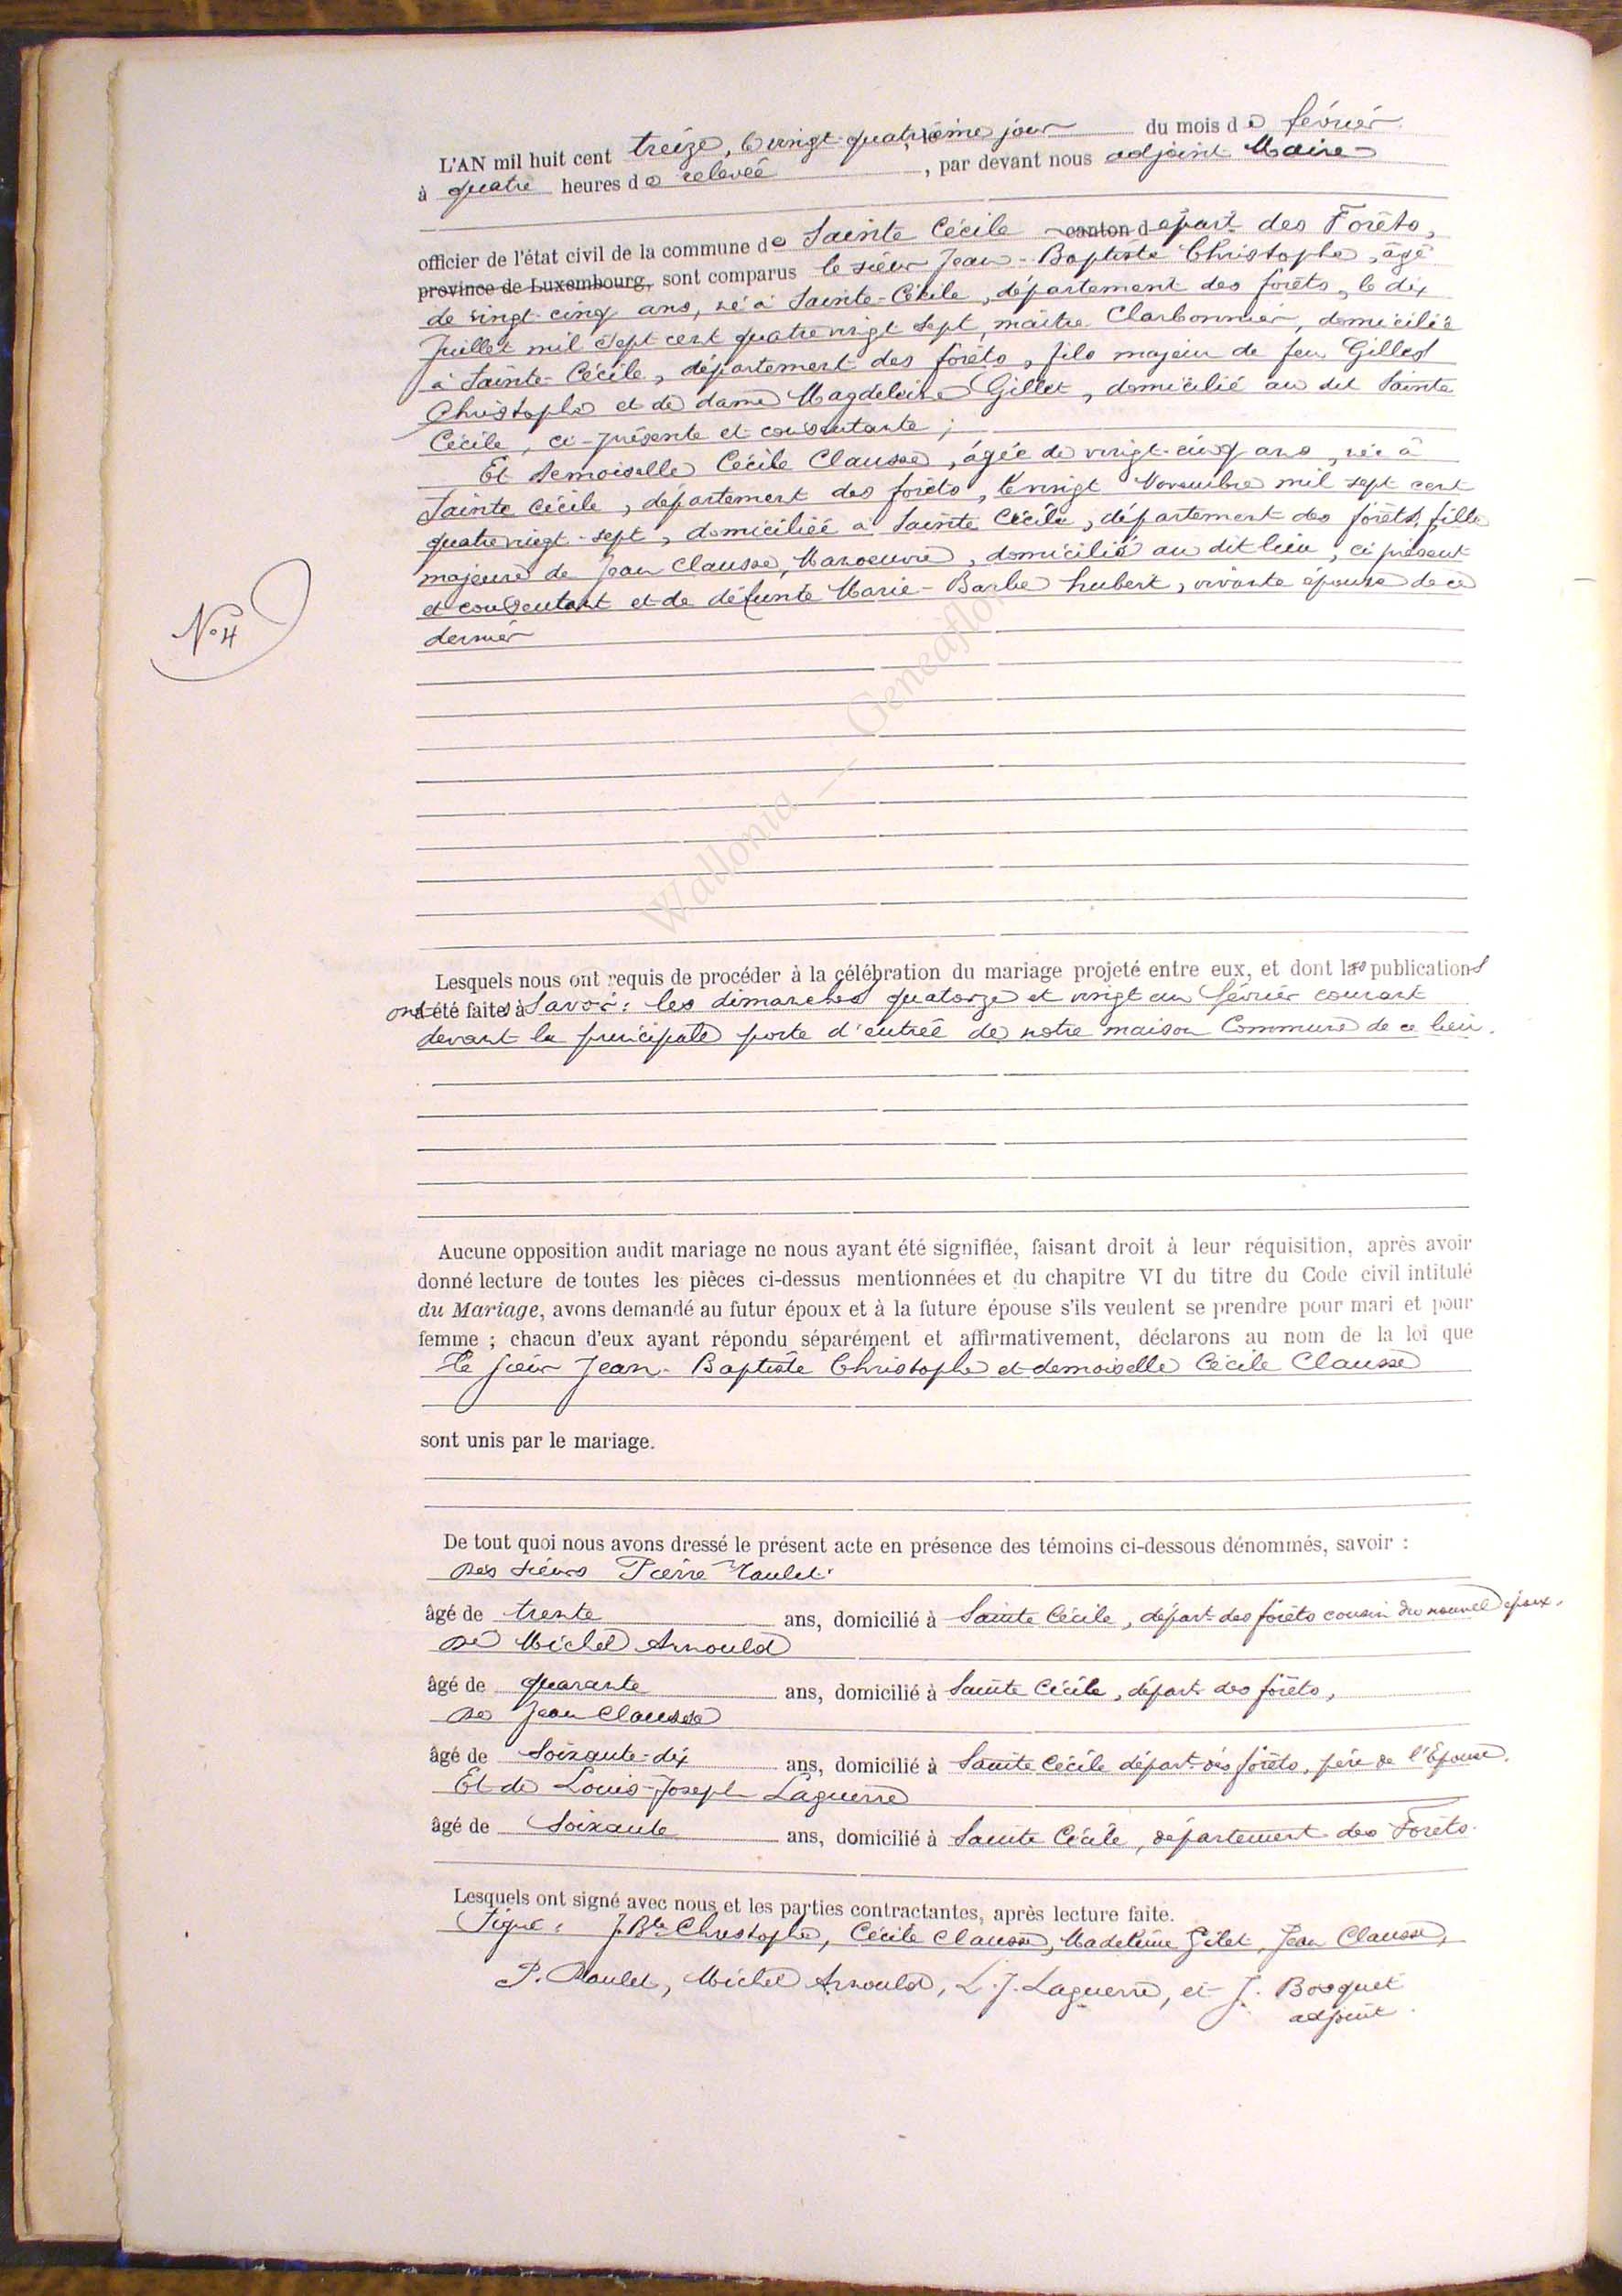 L'AN mil huit cent treize, le vingt-quatrième jour du mois de février
à quatre heures de relevée, par devant nous adjoint Maire
officier de l'état civil de la commune de Sainte Cécile canton départ des Forêts,
province de Luxembourg, sont comparus le sieur Jean-Baptiste Christophe, âgé
de vingt-cinq ans, né à Sainte-Cécile, département des forêts, le dix
Juillet mil sept cent quatre vingt sept, maître Charbonnier, domicilié
à Sainte-Cécile, département des forêts, fils majeur de feu Gilles
Christophe et de dame Magdeleine Gillet, domicilié au dit Sainte
Cécile, ci-présente et consentante ;
Et demoiselle Cécile Clausse, âgée de vingt-cinq ans, née à
Sainte Cécile, département des forêts, le vingt Novembre mil sept cent
quatre vingt-sept, domiciliée à Sainte Cécile, département des forêts, fille
majeure de Jean Clausse, Manoeuvre, domicilié au dit lieu, ci présent
et consentant et de défunte Marie-Barbe hubert, vivante épouse de ce
dernier
N° 4
Wallonia — Geneaflor
Lesquels nous ont requis de procéder à la célébration du mariage projeté entre eux, et dont les publications
ont été faites à Savoir : les dimanches quatorze et vingt un février courant
devant la principale porte d'entrée de notre maison Commune de ce lieu.
Aucune opposition audit mariage ne nous ayant été signifiée, faisant droit à leur réquisition, après avoir
donné lecture de toutes les pièces ci-dessus mentionnées et du chapitre VI du titre du Code civil intitulé
du Mariage, avons demandé au futur époux et à la future épouse s'ils veulent se prendre pour mari et pour
femme ; chacun d'eux ayant répondu séparément et affirmativement, déclarons au nom de la loi que
le sieur Jean-Baptiste Christophe et demoiselle Cécile Clausse
sont unis par le mariage.
De tout quoi nous avons dressé le présent acte en présence des témoins ci-dessous dénommés, savoir :
des sieurs Pierre
âgé de trente ans, domicilié à Sainte Cécile, départ des forêts cousin du nouvel époux.
de Michel Arnould
âgé de quarante ans, domicilié à Sainte Cécile, départ des forêts,
de Jean Clausse
âgé de Soixante-dix ans, domicilié à Sainte Cécile départ des forêts, père de l'Epouse.
Et de Louis-Joseph Laguerre
âgé de Soixante ans, domicilié à Sainte Cécile, département des Forêts.
Lesquels ont signé avec nous et les parties contractantes, après lecture faite.
Signé : J. Bte Christophe, Cécile Clausse, Madeleine Gilet, Jean Clausse,
P. Michel Arnould, L. J. Laguerre, et J. Bosquet
adjoint.